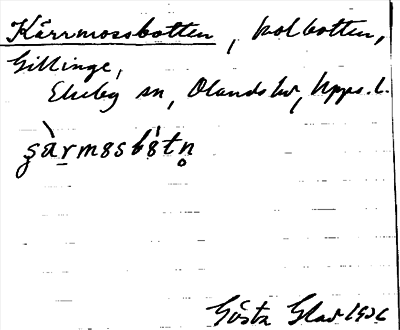 Kärrmossbotten, kolbotten,
Gillinge,
Ekeby sn, Olands hd, Upps. l.
Gösta Glad 1926